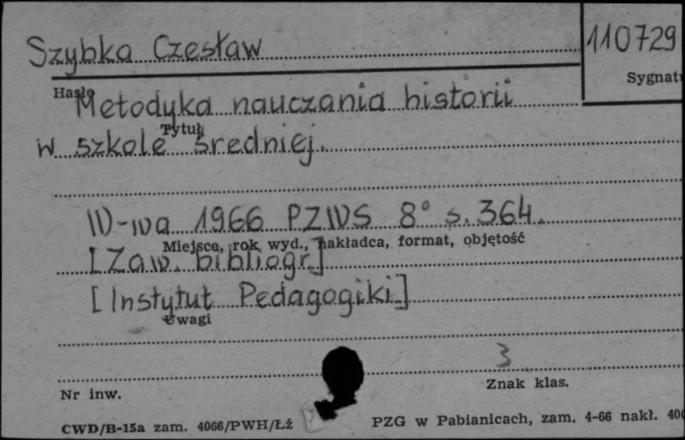 Szybka Czesław 110729
Hasło Sygnat
Metodyka nauczania historii
Tytuł
w szkole średniej.
W-wa 1966 PZWS 8° s. 364.
Miejsce, rok wyd., nakładca, format, objętość
[Zaw. bibliogr.]
[Instytut Pedagogiki.]
Uwagi
3
Nr inw. Znak klas.
CWD/B-15a zam. 4066/PWH/Łż PZG w Pabianicach, zam. 4-66 nakł. 400